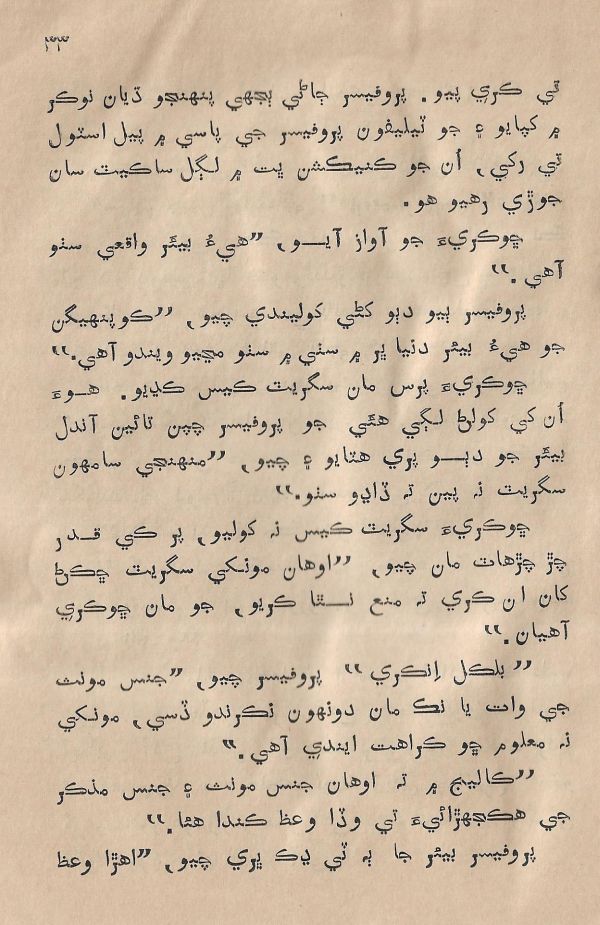 ٣٣
تي ڪري پيو. پروفيسر ڄاڻي ٻجهي پنهنجو ڌيان نوڪر
۾ کپايو ۽ جو ٽيليفون پروفيسر جي پاسي ۾ پيل اسٽول
تي رکي، اُن جو ڪنيڪشن ڀت ۾ لڳل ساڪيٽ سان
جوڙي رهيو هو.
ڇوڪريءَ جو آواز آيـــو، ”هيءُ بيئر واقعي سٺو
آهي.“
پروفيسر ٻيو دٻو کڻي کوليندي چيو، ”ڪوپنهيگن
جو هيءُ بيئر دنيا ڀر ۾ سٺي ۾ سٺو مڃيو ويندو آهي.“
ڇوڪريءَ پرس مان سگريٽ ڪيس ڪڍيو. هـوءَ
اُن کي کولڻ لڳي هئي جو پروفيسر چپن تائين آندل
بيئر جو دٻـــو پري هٽايو ۽ چيو، ”منهنجي سامهون
سگريٽ نہ پين تہ ڏاڍو سٺو.“
ڇوڪريءَ سگريٽ ڪيس نہ کوليو، پر ڪي قـدر
چڙ چڙهاٽ مان چيو، ”اوهان مونکي سگريٽ ڇڪڻ
کان ان ڪري تہ منع نـــٿا ڪريو، جو مان ڇوڪري
آهيان.“
”بلڪل اِنڪري“ پروفيسر چيو، ”جنس مونث
جي وات يا نڪ مان دونهون نڪرندو ڏسي، مونکي
نہ معلوم ڇو ڪراهت ايندي آهي.“
”ڪاليج ۾ تہ اوهان جنس مونث ۽ جنس مذڪر
جي هڪجهڙائيءَ تي وڏا وعظ ڪندا هئا.“
پروفيسر بيئر جا ٻہ ٽي ڍڪ ڀري چيو، ”اهڙا وعظ